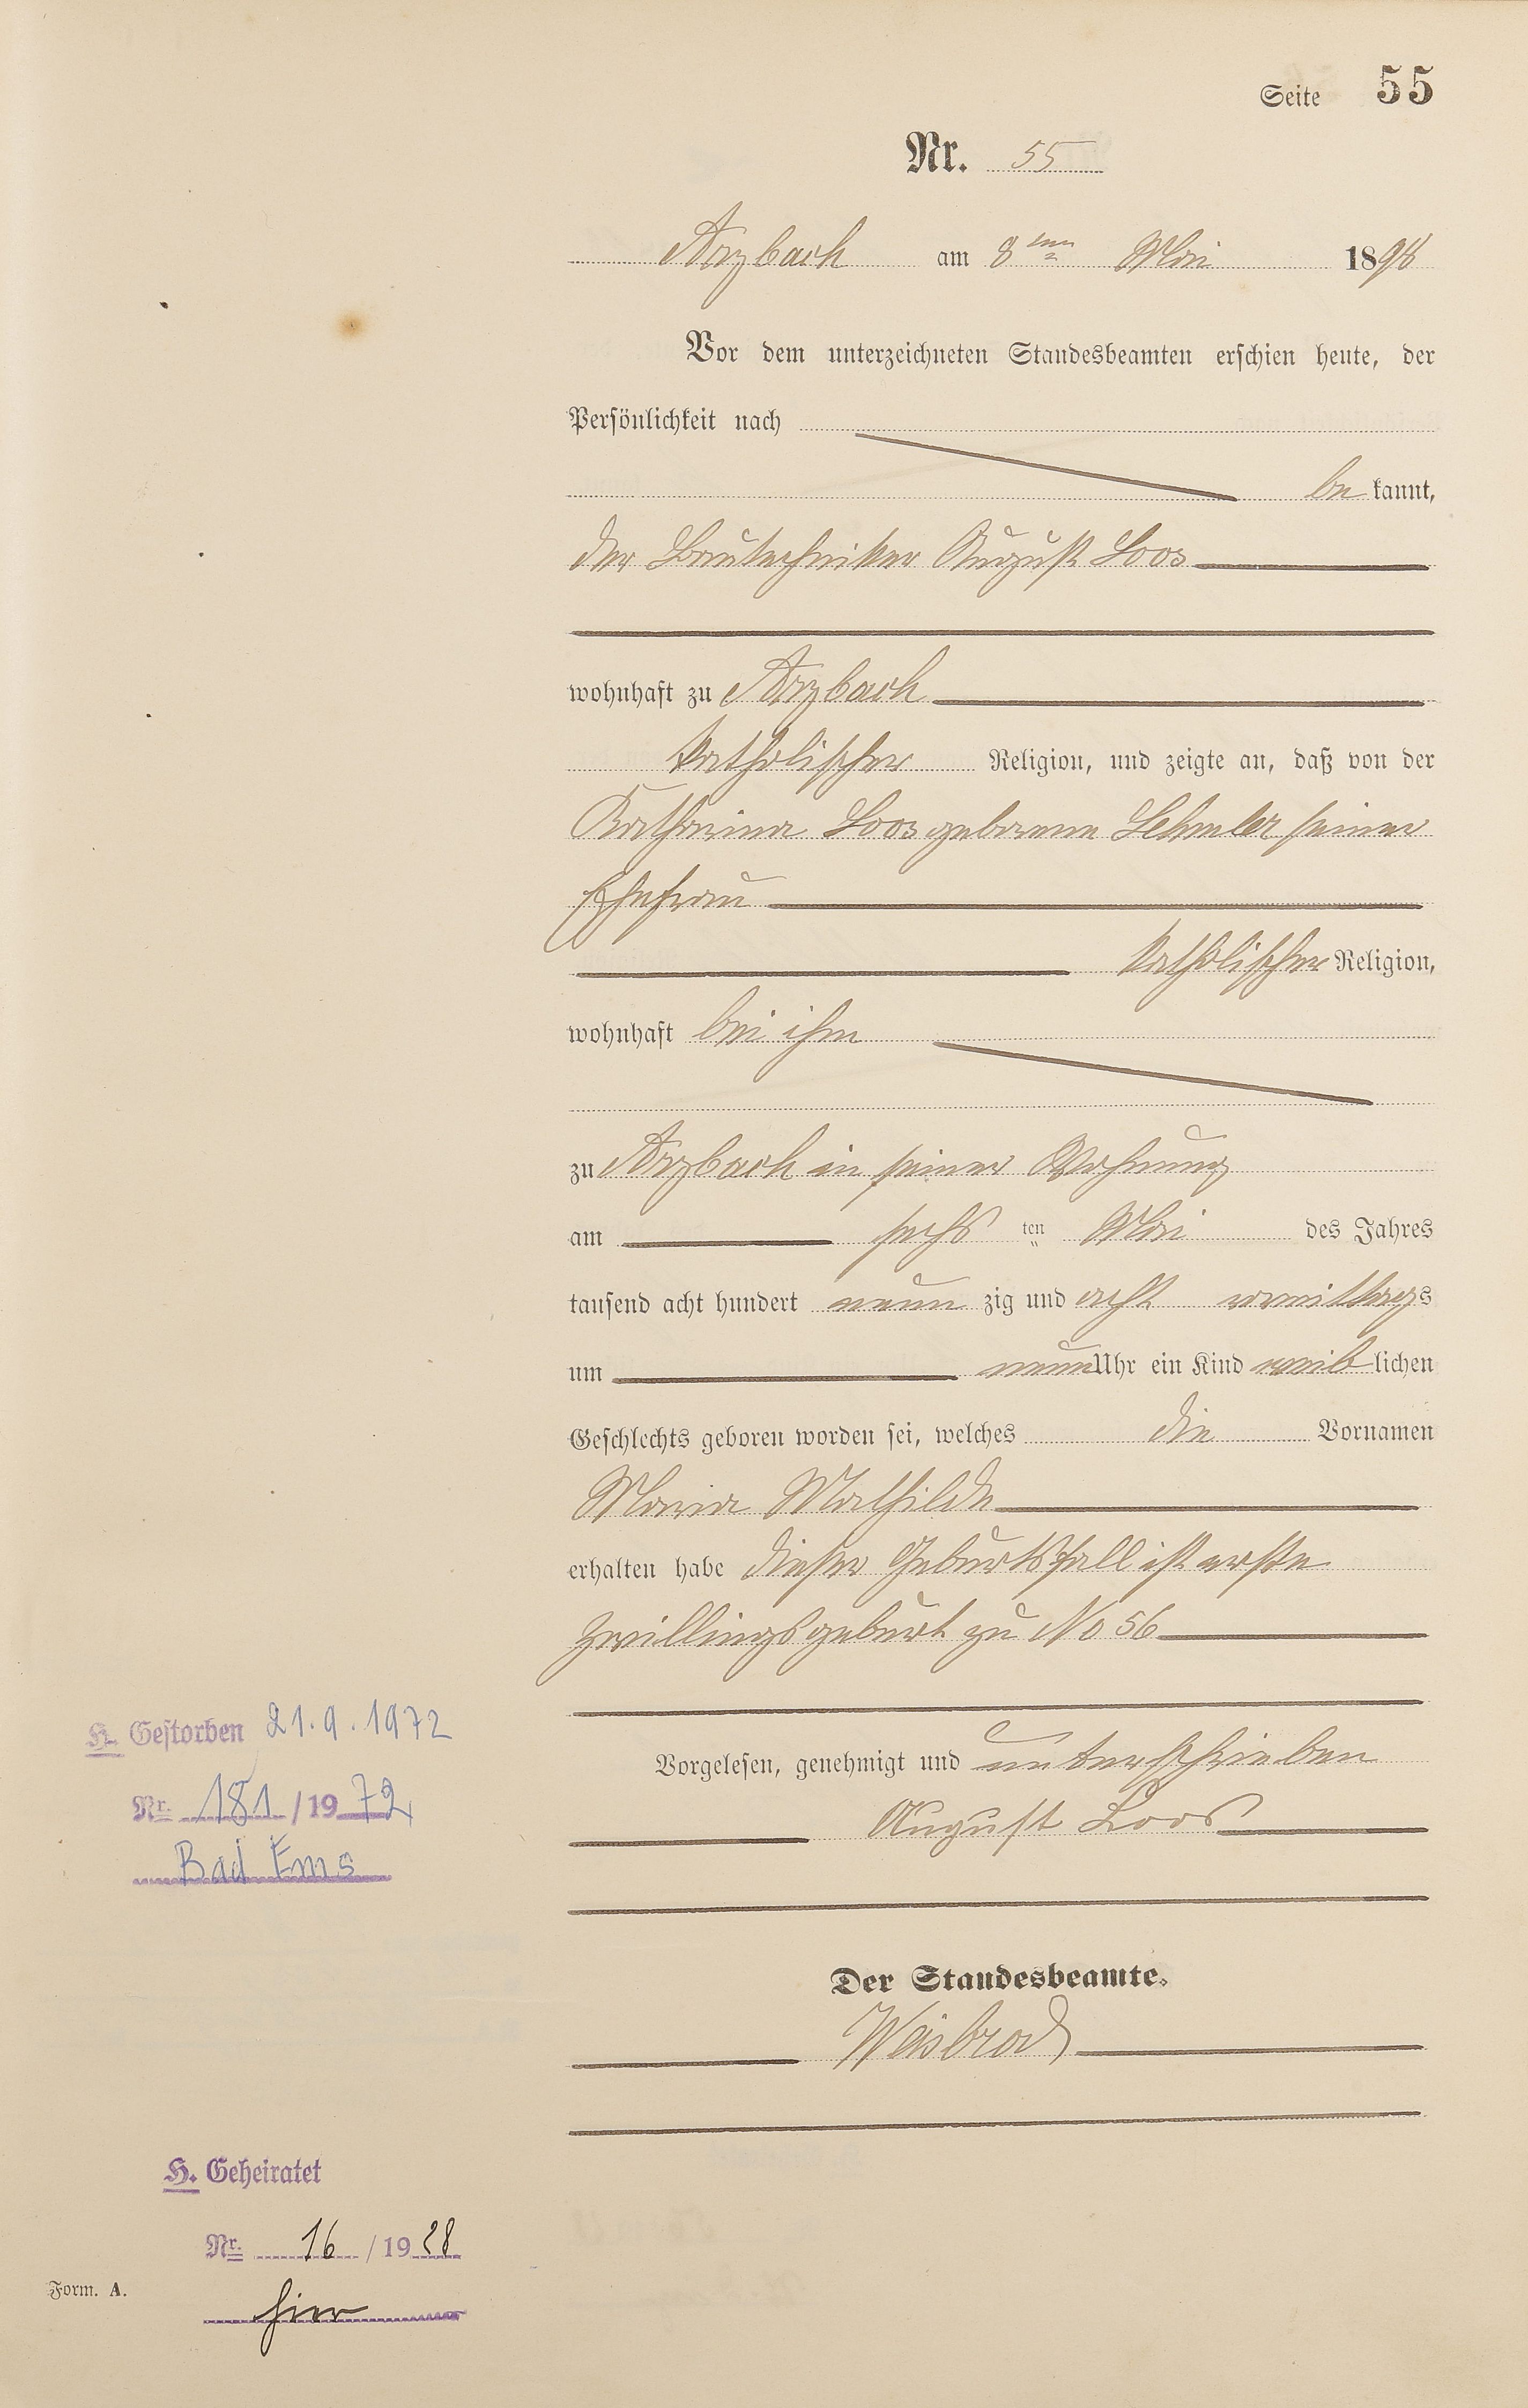 Seite 55
Nr. 55
Arzbach am 8ten Mai 1898
Vor dem unterzeichneten Standesbeamten erschien heute, der
Persönlichkeit nach
be kannt,
der Bautechniker August Loos
wohnhaft zu Arzbach
katholischer Religion, und zeigte an, daß von der
Katharina Loos geborene Lehmler seiner
Ehefrau
katholischer Religion,
wohnhaft bei ihm
zu Arzbach in seiner Wohnung
am sechs ten Mai des Jahres
tausend acht hundert neun zig und acht vormittags
um neun Uhr ein Kind weib lichen
Geschlechts geboren worden sei, welches die Vornamen
Maria Mathilde
erhalten habe dieser Geburtsfall ist erste
Zwillingsgeburt zu No 56
Vorgelesen, genehmigt und unterschrieben
August Loos
Der Standesbeamte.
Weisbrod
H. Gestorben 21.9.1972
Nr. 181 / 19 72
Bad Ems
H. Geheiratet
Nr. 16 / 19 28
hier
Form. A.